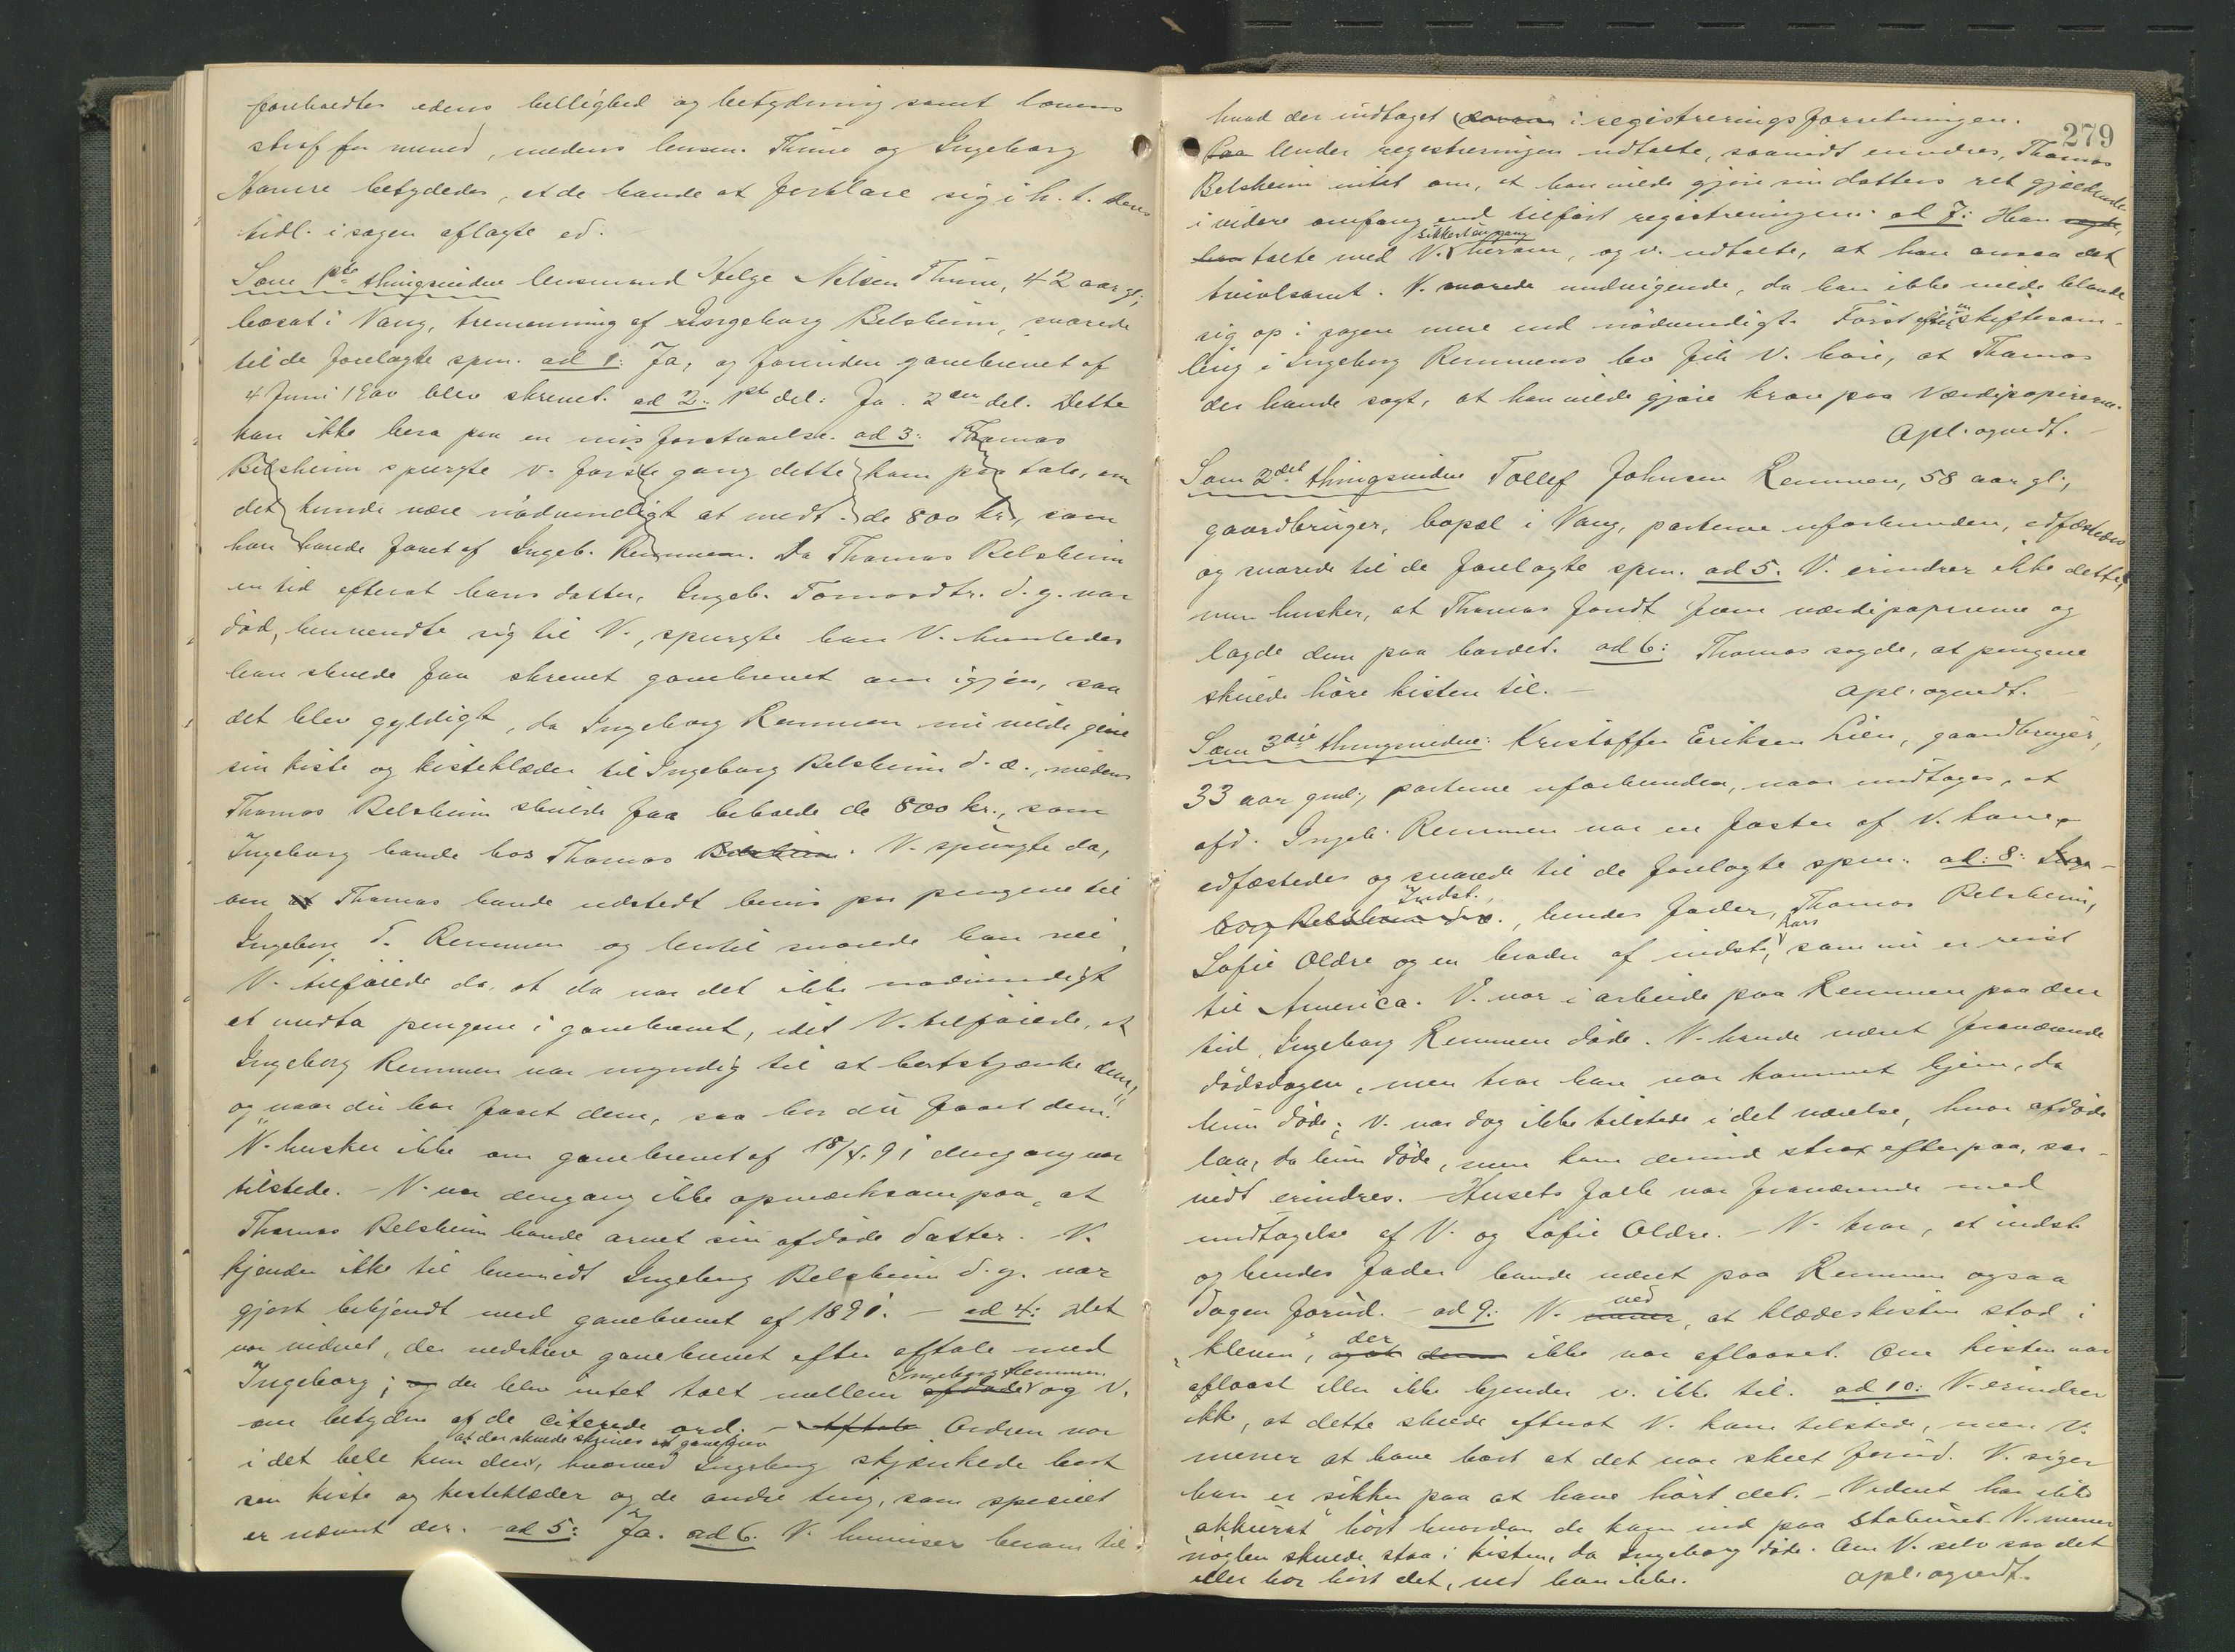 foreholdtes edens hellighed og betydning samt lovens
straf for mened, medens lensm. Thune og Ingeborg
Hamre betydedes, at de havde at forklare sig i h. t. deres
tidl. i sagen aflagte ed.
Som 1ste thingsvidne lensmand Helge Nilsen Thune, 42 aar gl.,
bosat i Vang, tremenning af Ingeborg Belsheim, svarede
til de forelagte spm. ad 1: Ja, og forinden gavebrevet af
4 Juni 1900 blev skrevet. ad 2: 1ste del: Ja. 2den del. Dette
kan ikke bero paa en misforstaaelse. ad 3: Thomas
Belsheim spurgte v. første gang dette kom paa tale, om
det kunde være nødvendigt at medt. de 800 kr., som
han havde faaet af Ingeb. Remmen. Da Thomas Belsheim
en tid efterat hans datter, Ingeb. Tomasdtr. d. y. var
død, henvendte sig til V., spurgte han V. hvorledes
han skulde faa skrevet gavebrevet om igjen, saa
det blev gyldigt, da Ingeborg Remmen nu vilde give
sin kiste og kisteklæder til Ingeborg Belsheim d. æ., medens
Thomas Belsheim skulde faa beholde de 800 kr., som
Ingeborg havde hos Thomas Belsheim. V. spurgte da,
om at Thomas havde udstedt bevis for pengene til
Ingeborg T. Remmen og hertil svarede han nei.
V. tilføiede da, at da var det ikke nødvendigt
at medta pengene i gavebrevet, idet V. tilføiede, at
Ingeborg Remmen var myndig til at bortskjænke dem,
og "naar du har faaet dem, saa har du faaet dem."
V. husker ikke om gavebrevet af 18/4. 91 dengang var
tilstede. – V. var dengang ikke opmerksom paa, at
Thomas Belsheim havde arvet sin afdøde datter. V.
kjender ikke til hvorvidt Ingeborg Belsheim d. y. var
gjort bekjendt med gavebrevet af 1891. – ad 4: Det
var vidnet, der nedskrev gavebrevet efter aftale med
Ingeborg Remmen
Ingeborg; og der blev intet talt mellem afdøde og V.
om betydn. af de citerede ord. – Aftale Ordren var
at der skulde skrives et gavebrev
i det hele kun den, hvorved Ingeborg skjænkede bort
sin kiste og kisteklæder og de andre ting, som specielt
er nævnt der. – ad 5: Ja. ad 6. V. henviser herom til
279
hvad der indtaget i registreringsforretningen.
Under registreringen udtalte, saavidt erindres, Thomas
Belsheim intet om, at han vilde gjøre sin datters ret gjældende
i videre omfang end tilført registreringen. ad 7: Han sagde,
sikkert en gang
talte med V. herom, og v. udtalte, at han ansaa det
tvivlsomt. V. svarede undvigende, da han ikke vilde blande
sig op i sagen mere end nødvendigt. Først efter en skiftesam-
ling i Ingeborg Remmens bo fik V. høre, at Thomas
der havde sagt, at han vilde gjøre krav paa værdipapirerne.
Opl. og vedt. –
Som 2det thingsvidne Tollef Johnsen Remmen, 58 aar gl.,
gaardbruger, bopæl i Vang, parterne uforbunden, edfæstedes
og svarede til de forelagte spm. ad 5. V. erindrer ikke dette,
men husker, at Thomas fandt frem værdipapirerne og
lagde dem paa bordet. ad 6: Thomas sagde, at pengene
skulde høre kisten til. – Opl. og vedt.
Som 3die thingsvidne: Kristoffer Eriksen Lien, gaardbruger,
33 aar gml., parterne uforbunden, naar undtages, at
afd. Ingeb. Remmen var en faster af V. kone,
edfæstedes og svarede til de forelagte spm. ad. 8: Inge-
Indst.
borg Belsheim d. æ., hendes fader, Thomas Belsheim,
Lars
Sofie Oldre og en broder af indst., som nu er reist
til America. V. var i arbeide paa Remmen paa den
tid, Ingeborg Remmen døde. V. havde været fraværende
dødsdagen, men tror han var kommet hjem, da
hun døde; V. var dog ikke tilstede i det værelse, hvor afdøde
laa, da hun døde, men kom derind strax efterpaa, saa-
vidt erindres. – Husets folk var fraværende med
undtagelse af V. og Sofie Oldre. – V. tror, at indst.
og hendes fader havde været paa Remmen ogsaa
dagen forud. – ad 9: V. ved, at klædeskisten stod i
der
"kleven", og at denne ikke var aflaaset. Om kisten var
aflaast eller ikke kjender v. ikke til. ad 10: V. erindrer
ikke, at dette skede efterat V. kom tilstede, men V.
mener at have hørt at det var skeet forud. V. siger
han er sikker paa at have hørt det. – Vidnet har ikke
"akkurat" hørt hvordan de kom ind paa staburet. V. mener
nøglen skulde staa i kisten, da Ingeborg døde. Om V. selv saa det
eller har hørt det, ved han ikke. Opl. og vedt.